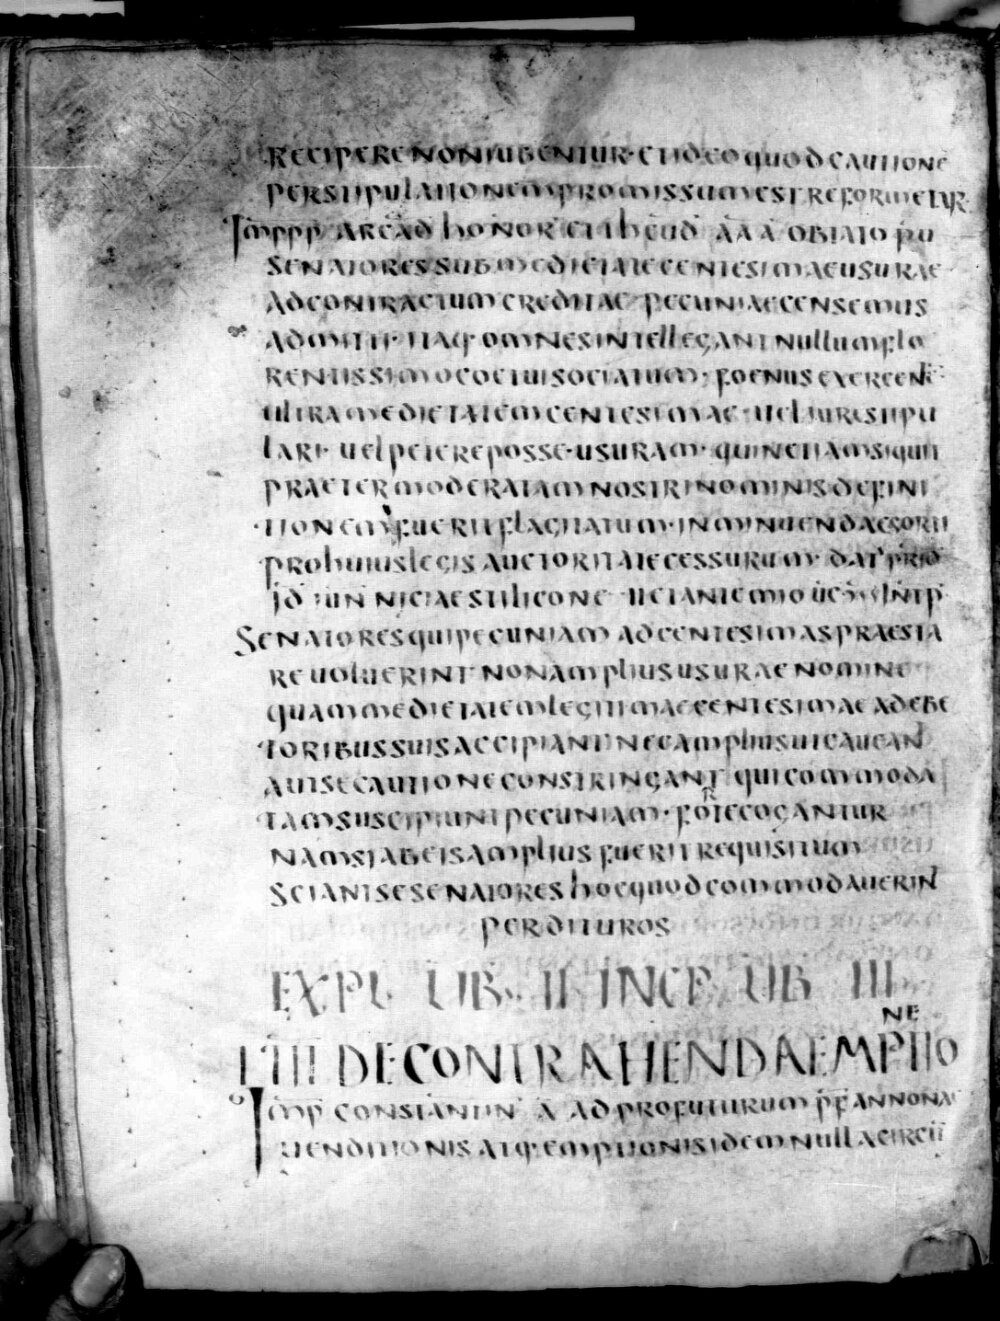 RECIPERE NON IUBENTUR· ET IDEO QUOD CAUTIONE
PER STIPULATIONEM PROMISSUM EST REFORMETUR
IMPPP ARCAD HONOR ET THEUD AAA OBTATO PU
SENATORES SUB MEDIETATE CENTESIMAE USURAE
AD CONTRACTUM CREDITAE PECUNIAE CENSEMUS
ADMITTI· ITAQ· OMNES INTELLEGANT NULLUM FLO
RENTISSIMO COETUI SOCIATUM· FOENUS EXERCENE
ULTRA MEDIETATEM CENTESIMAE· UEL IURE STIPU
LARI· UEL PETERE POSSE· USURAM· QUIN ETIAM SI QUIT
PRAETER MODERATAM NOSTRI NOMINIS DEFINI
TIONEM FUERIT FLAGITATUM· IN MINUENDAE SORTI
PRO HUIUS LEGIS AUCTORITATE CESSURUM· DAT PRID
ID IUN NICIAE STILICONE ET ANTEMIO UC INTP
SENATORES QUI PECUNIAM AD CENTESIMAS PRAESTA
RE UOLUERINT NON AMPLIUS USURAE NOMINE
QUAM MEDIETATEM LEGITIMAE CENTESIMAE A DEBE
TORIBUS SUIS ACCIPIANT NEC AMPLIUS UT CAUEAN
AUT SE CAUTIONE CONSTRINGANT QUI COMMODA
TAM SUSCIPIUNT PECUNIAM· FORTE COGANTUR
NAM SI AB EIS AMPLIUS FUERIT REQUISITUM
SCIANT SE SENATORES HOC QUOD COMMODAUERIN
PERDITUROS
EXPL LIB· II INCP LIB III
I TIT DE CONTRAHENDA EMPTIONE
IMP CONSTANTIN A AD PROFUTURUM PF ANNONA
UENDITIONIS ATQ· EMPTIONIS IDEM NULLA CIRCU